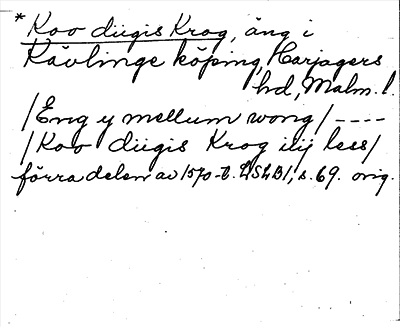 * Koo diigis Krog, äng i
Kävlinge köping, Harjagers
hd, Malm. l.
/Eng y mellum wong/ ----
/Koo diigis Krog iiij less/
förra delen av 1570-t. LSLB1, s. 69. orig.